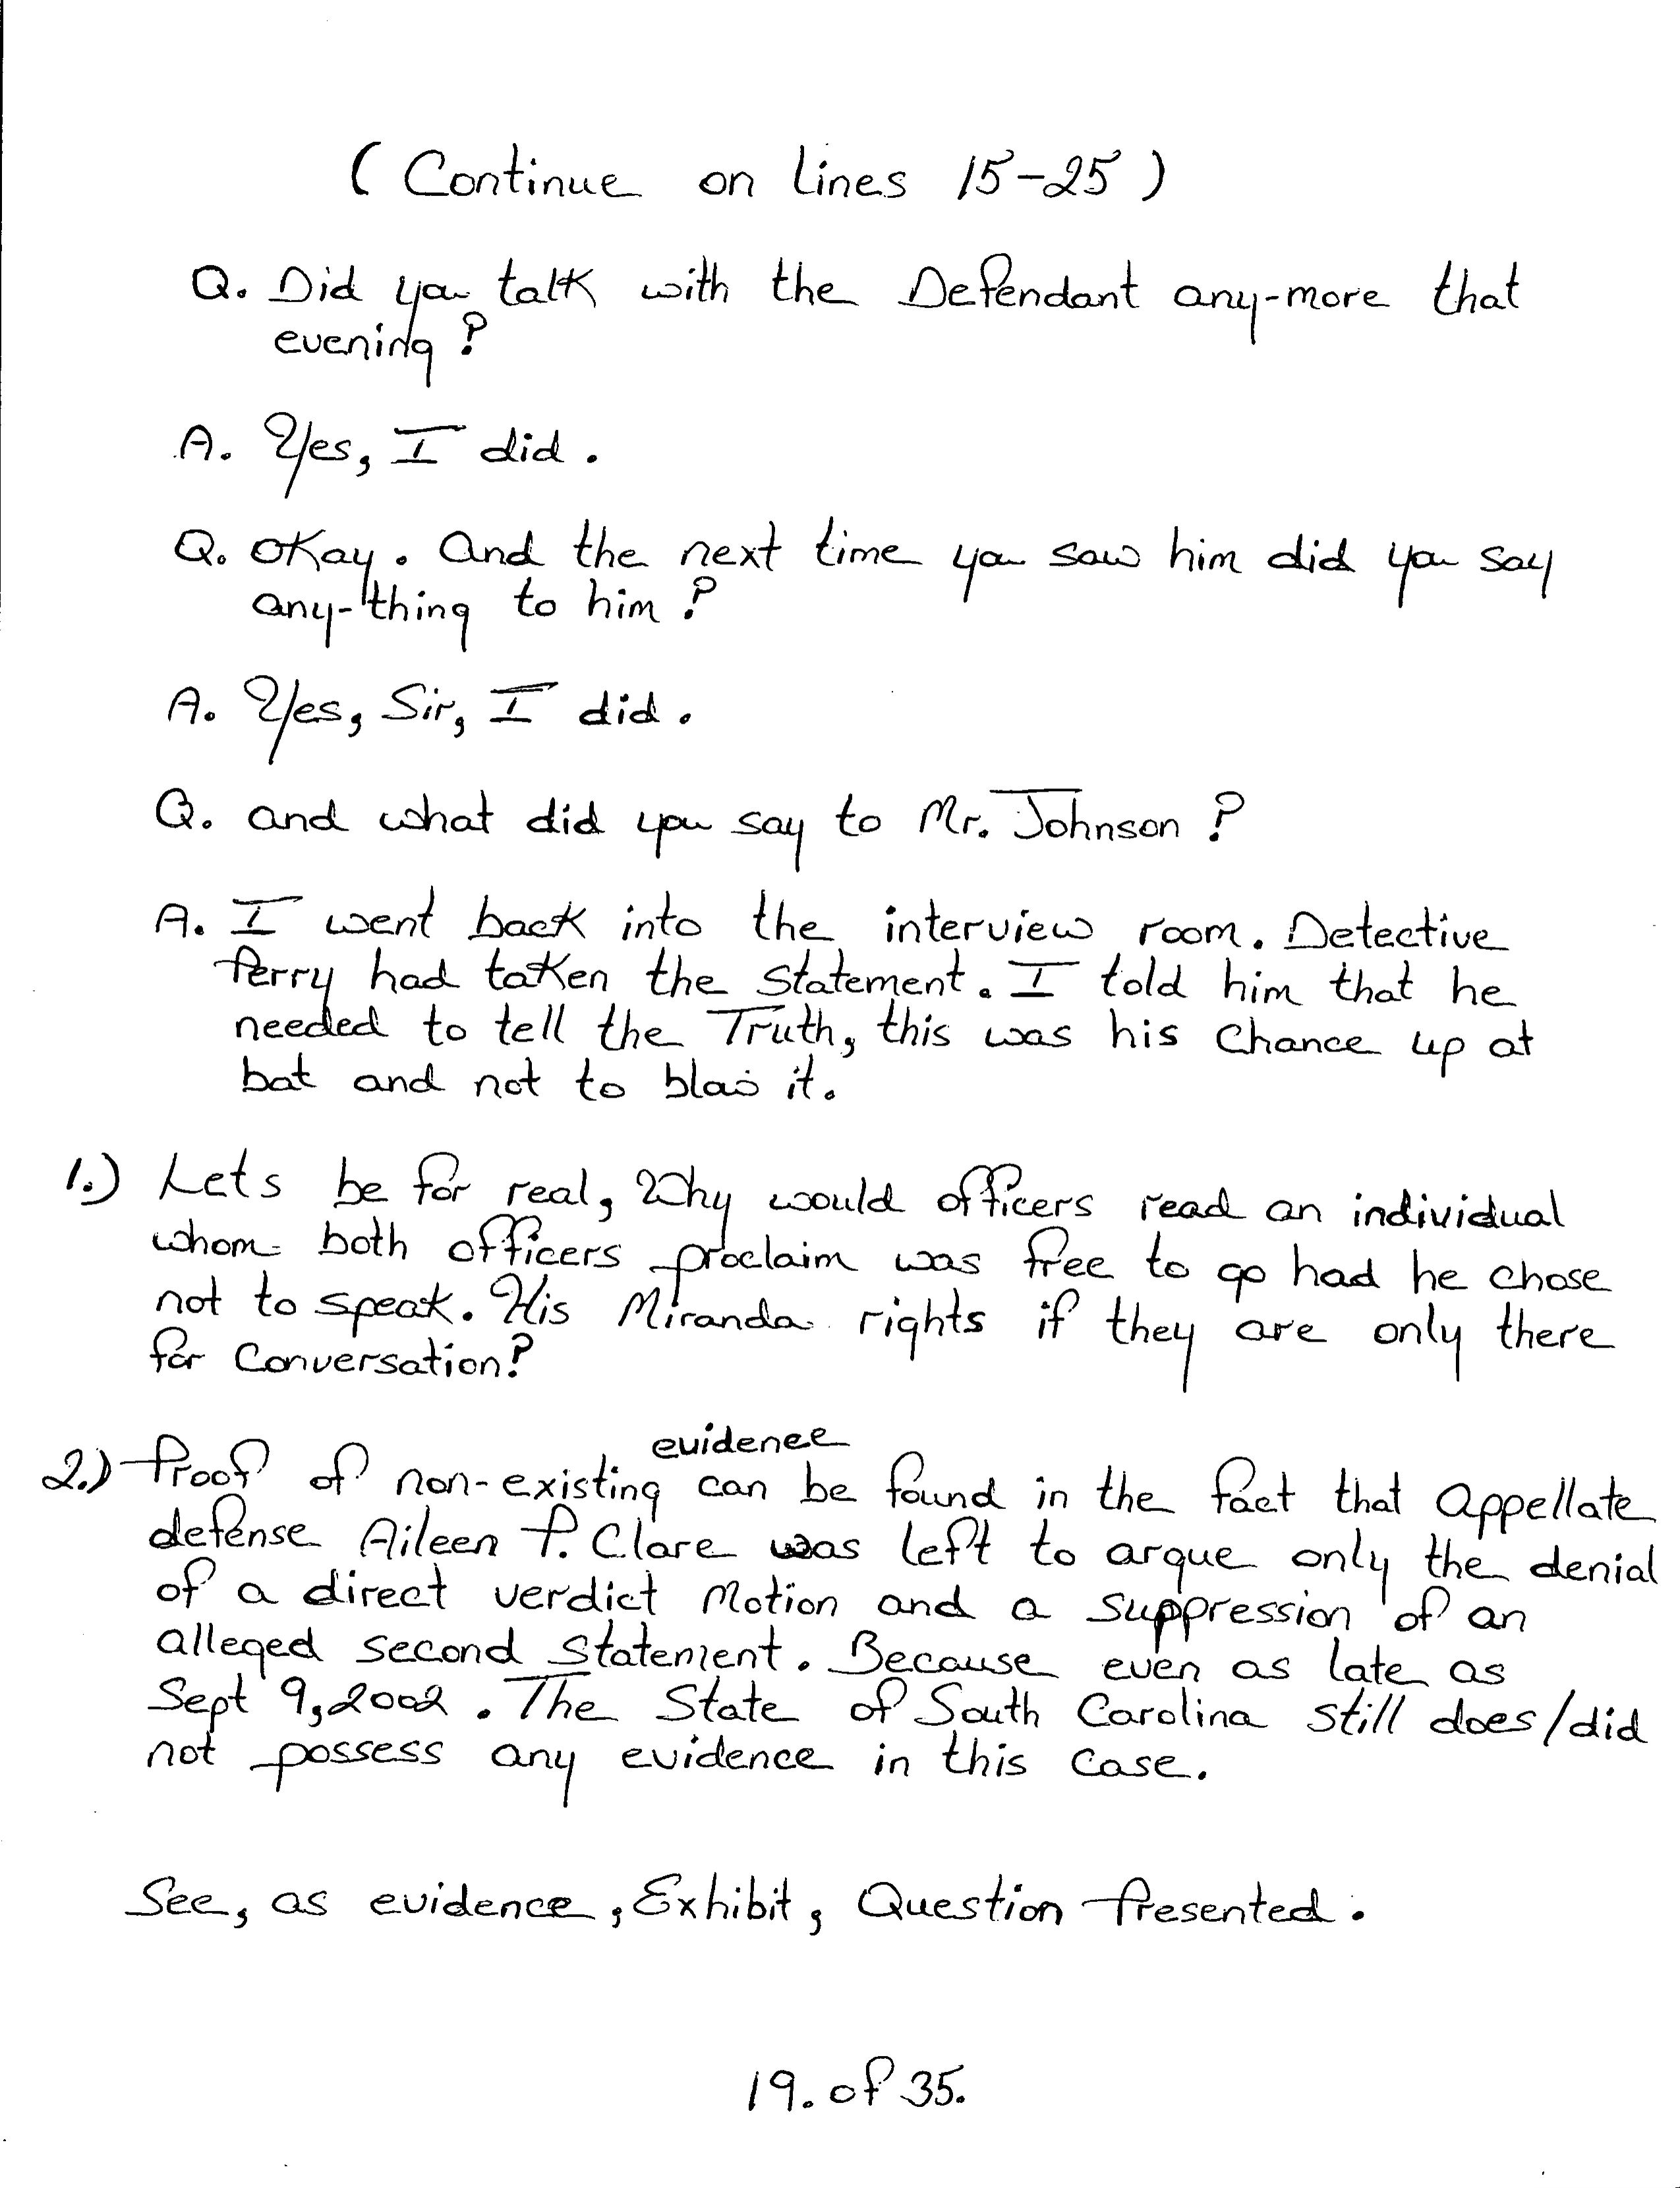 ( Continue on Lines 15-25 )
Q. Did you talk with the Defendant any-more that
evening?
A. Yes, I did.
Q. Okay. And the next time you saw him did you say
any-thing to him?
A. Yes, Sir, I did.
Q. and what did you say to Mr. Johnson?
A. I went back into the interview room. Detective
Perry had taken the Statement. I told him that he
needed to tell the Truth, this was his Chance up at
bat and not to blow it.
1.) Lets be for real, Why would officers read an individual
whom both officers proclaim was free to go had he chose
not to speak. His Miranda rights if they are only there
for Conversation?
evidence
2.) Proof of non-existing can be found in the fact that Appellate
defense Aileen P. Clare was left to argue only the denial
of a direct verdict Motion and a suppression of an
alleged second statement. Because even as late as
Sept 9, 2002. The State of South Carolina still does/did
not possess any evidence in this case.
See, as evidence, Exhibit, Question Presented.
19. of 35.